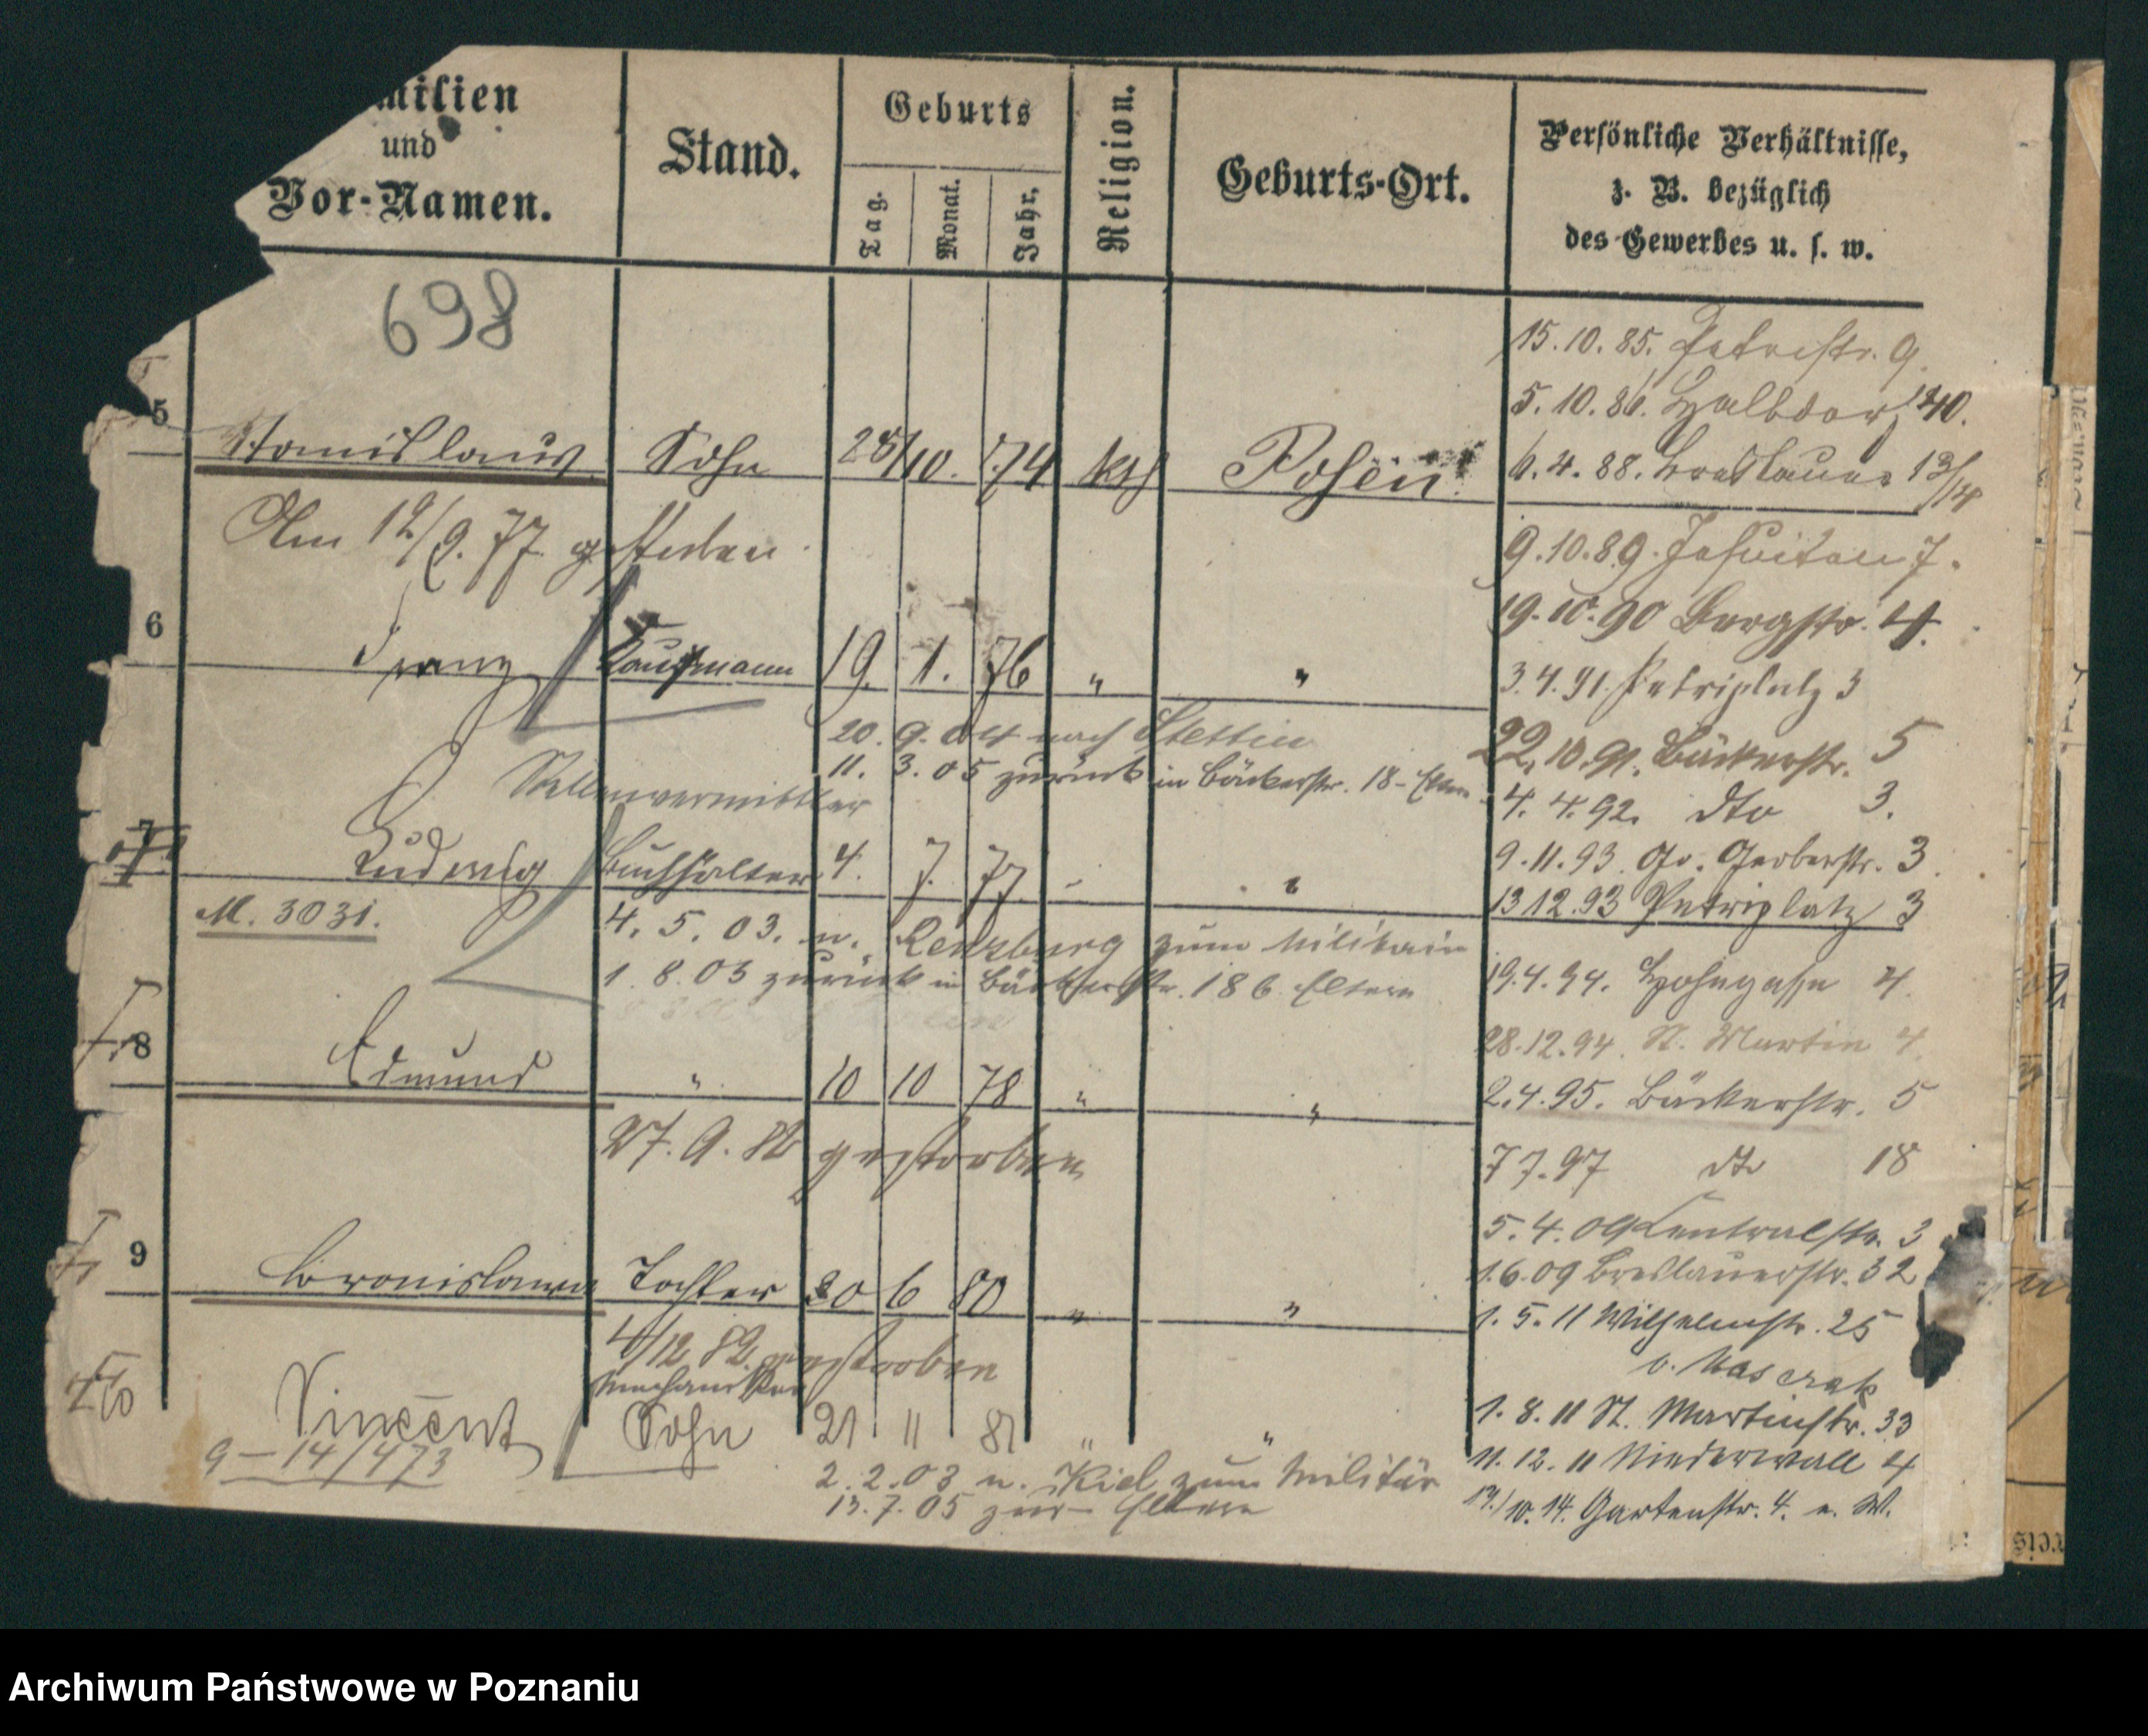 milien
und
Vor-Namen.
Stand.
Geburts
Tag.
Monat.
Jahr,
Religion.
Geburts-Ort.
Persönliche Verhältnisse,
z. B. bezüglich
des Gewerbes u. s. w.
698
15.10.85. Petristr. 9.
5.10.86. Halbdorf 40.
5 Stanislaus Sohn 28/10. 74 kth Posen.
6.4.88. Breslauer 13/14
Am 12/9. 77. gestorben.
9.10.89. Jesuiten 7.
19.10.90 Bergstr. 4.
6 Franz Kaufmann 19. 1. 76 " "
3.4.91. Petriplatz 3
20. 9. 04 nach Stettin
22.10.91. Bäckerstr. 5
11. 3. 05 zurück in Bäckerstr. 18 - Eltern
Stellenvermittler
4. 4. 92. dto 3.
7 Ludwig Buchhalter 4. 7. 77. " "
9.11.93. Gr. Gerberstr. 3.
13 12.93 Petriplatz 3
M. 3031.
4. 5. 03. n. Rendsburg zum Militair
1. 8. 03 zurück in Bäckerstr. 18 b. Eltern
19.4.94. Hohegasse 4.
28.12.94. St. Martin 4.
8 Edmund " 10 10 78 " "
2.4.95. Bäckerstr. 5
27. 9. 82 gestorben
7 7.97 dto 18
5. 4. 09 Centralstr. 3
9 Bronislawa Tochter 20 6 80 " "
1.6.09 Breslauerstr. 32
1. 5. 11 Wilhelmstr. 25
4/12 82. gestorben
Mechaniker
1. 8. 11 St. Martinstr. 33
10 Vincent Sohn 21 11 81 " "
9-14/473
2. 2. 03 n. Kiel zum Militär
11. 12. 11 Niederwall 4
13. 7. 05 zur- Eltern
14./10. 14. Gartenstr. 4. e. W.
Archiwum Państwowe w Poznaniu